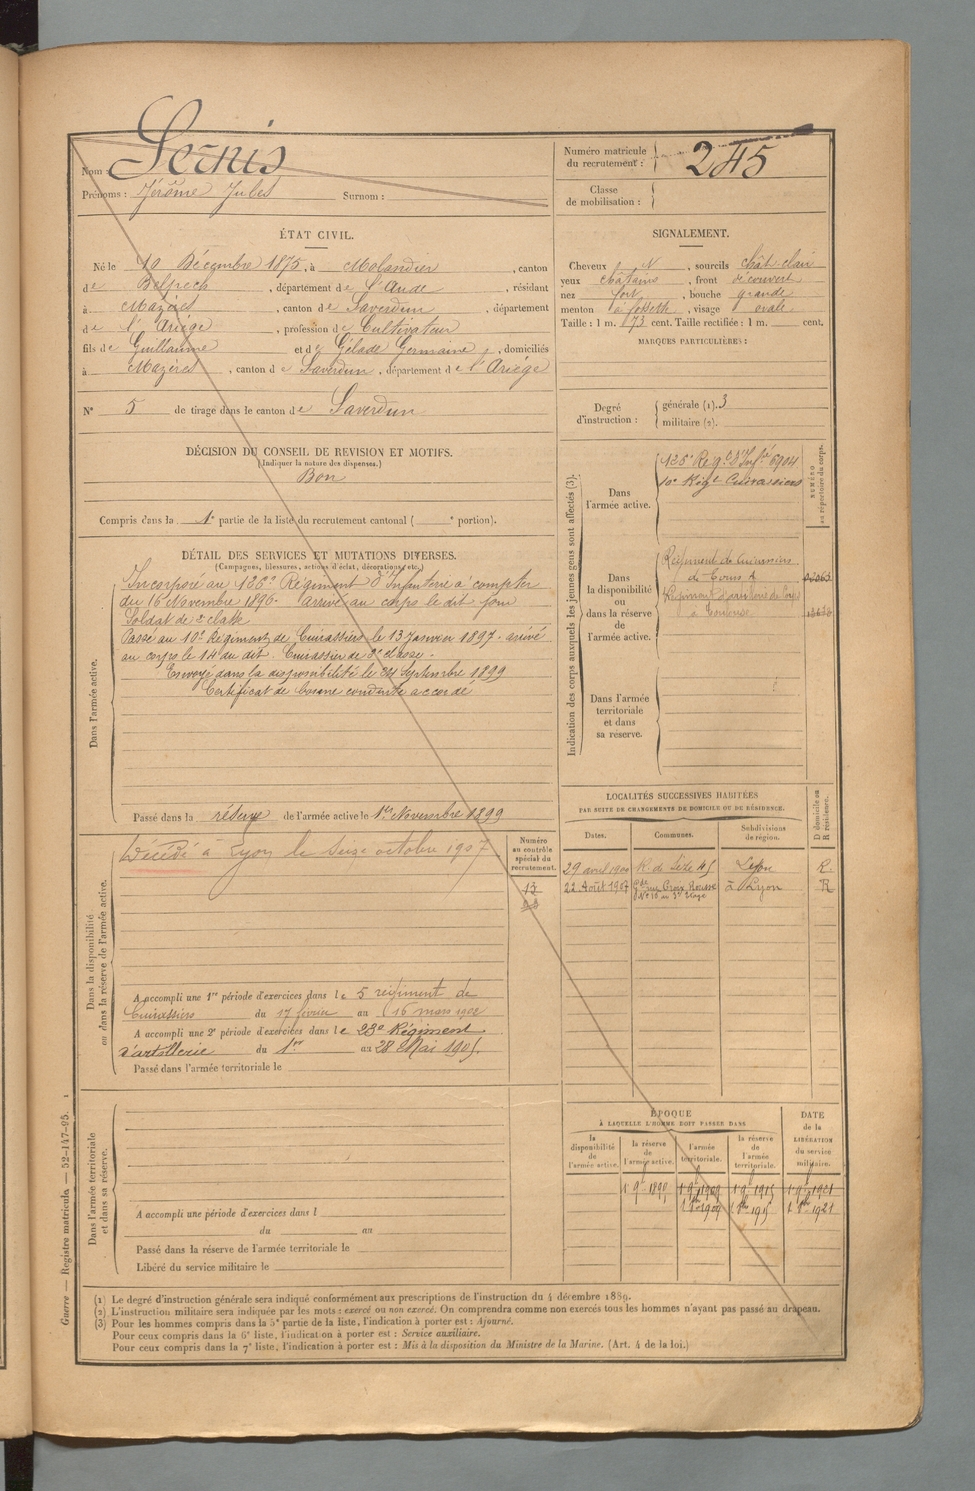 Nom : Sernis
Prénoms : Jérôme Jules Surnom :
Numéro matricule du recrutement : 245
Classe de mobilisation :
ÉTAT CIVIL.
Né le 10 Décembre 1875, à Molandier, canton
de Belpech, département de l'Aude, résidant
à Mazères, canton de Saverdun, département
de l'Ariège, profession de Cultivateur
fils de Guillaume et de Gélade Germaine, domiciliés
à Mazères, canton de Saverdun, département de l'Ariège
N° 5 de tirage dans le canton de Saverdun
SIGNALEMENT.
Cheveux N, sourcils chât-clair
yeux châtains, front découvert
nez fort, bouche grande
menton à fossette, visage ovale
Taille : 1 m. 673 cent. Taille rectifiée : 1 m. cent.
MARQUES PARTICULIÈRES :
Degré d'instruction : générale (1). 3
militaire (2).
DÉCISION DU CONSEIL DE REVISION ET MOTIFS.
(Indiquer la nature des dispenses.)
Bon
Compris dans la 1e partie de la liste du recrutement cantonal ( e portion).
DÉTAIL DES SERVICES ET MUTATIONS DIVERSES.
(Campagnes, blessures, actions d'éclat, décorations, etc.)
Dans l'armée active.
Incorporé au 126e Régiment d'Infanterie à compter
du 16 Novembre 1896. Arrivé au corps le dit jour
Soldat de 2e classe
Passé au 10e Régiment de Cuirassiers le 13 Janvier 1897. arrivé
au corps le 14 du dit. Cuirassier de 2e classe.
Envoyé dans la disponibilité le 24 Septembre 1899
Certificat de bonne conduite accordé
Passé dans la réserve de l'armée active le 1er Novembre 1899
Indication des corps auxquels les jeunes gens sont affectés (3).
NUMÉRO au répertoire du corps.
Dans l'armée active.
126e Régt d'Infie 6904
10e Régt Cuirassiers
Dans la disponibilité ou dans la réserve de l'armée active.
Régiment de Cuirassiers
de
Régiment d'artillerie de Corps
à Toulouse
Dans l'armée territoriale et dans sa réserve.
Dans la disponibilité ou dans la réserve de l'armée active.
Numéro au contrôle spécial du recrutement.
13
Décédé à Lyon le seize octobre 1907
A accompli une 1re période d'exercices dans le 5 régiment de
Cuirassiers du 17 février au 16 mars 1902
A accompli une 2e période d'exercices dans le 23e Régiment
d'artillerie du 1er au 28 Mai 1905.
Passé dans l'armée territoriale le
LOCALITÉS SUCCESSIVES HABITÉES
PAR SUITE DE CHANGEMENTS DE DOMICILE OU DE RÉSIDENCE.
Dates. Communes. Subdivisions de région. D domicile ou R résidence.
29 avril 1900 R. de Sèze 45 Lyon R.
22 Août 1907 Gde rue Croix Rousse à Lyon R
N° 10 au 3e étage
Dans l'armée territoriale et dans sa réserve.
A accompli une période d'exercices dans l
du au
Passé dans la réserve de l'armée territoriale le
Libéré du service militaire le
ÉPOQUE
À LAQUELLE L'HOMME DOIT PASSER DANS
DATE de la LIBÉRATION du service militaire.
la disponibilité de l'armée active. la réserve de l'armée active. l'armée territoriale. la réserve de l'armée territoriale.
1 9bre 1899 1 9bre 1909 1 9bre 1915 1 9bre 1921
1 8bre 1909 1 8bre 1915 1 8bre 1921
(1) Le degré d'instruction générale sera indiqué conformément aux prescriptions de l'instruction du 4 décembre 1889.
(2) L'instruction militaire sera indiquée par les mots : exercé ou non exercé. On comprendra comme non exercés tous les hommes n'ayant pas passé au drapeau.
(3) Pour les hommes compris dans la 5e partie de la liste, l'indication à porter est : Ajourné.
Pour ceux compris dans la 6e liste, l'indication à porter est : Service auxiliaire.
Pour ceux compris dans la 7e liste, l'indication à porter est : Mis à la disposition du Ministre de la Marine. (Art. 4 de la loi.)
Guerre — Registre matricule. — 52-147-95. 1